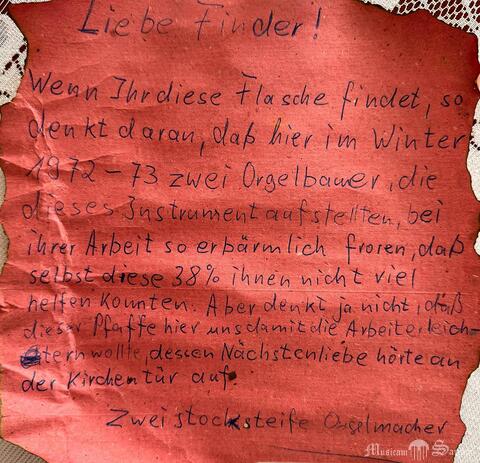 Liebe Finder!
Wenn Ihr diese Flasche findet, so
denkt daran, daß hier im Winter
1972-73 zwei Orgelbauer, die
dieses Instrument aufstellten, bei
ihrer Arbeit so erbärmlich froren, daß
selbst diese 38% ihnen nicht viel
helfen konnten. Aber denkt ja nicht, daß
dieser Pfaffe hier uns damit die Arbeit erleich-
tern wollte, dessen Nächstenliebe hörte an
der Kirchentür auf.
Zwei stocksteife Orgelmacher
Musicam